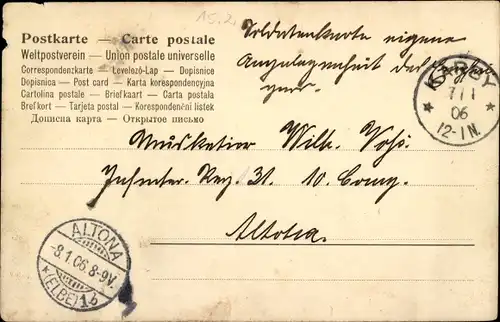 15.2.
Postkarte — Carte postale
Weltpostverein — Union postale universelle
Correspondenzkarte — Levelező-Lap — Dopisnice
Dopisnica — Post card — Karta korespondencyjna
Cartolina postale — Briefkaart — Carta postala
Brefkort — Tarjeta postal — Korespondenční lístek
Дописна карта — Открытое письмо
Soldatenkarte eigene
Angelegenheit des
KÖRBY
7/1
06
12-1N.
Musketier Wilh. Vohs.
Infanter. Reg. 31. 10. Comp.
Altona.
ALTONA
-8.1.06.8-9V.
* (ELBE) 1b